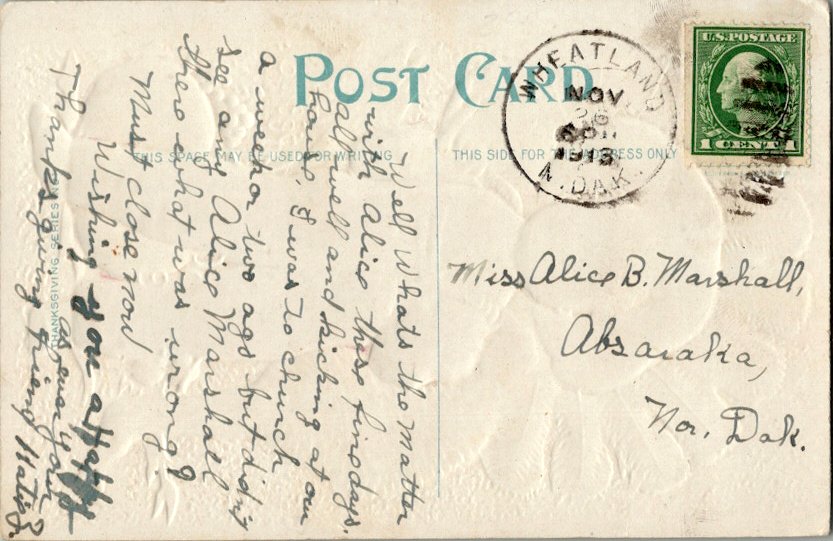 POST CARD
THIS SPACE MAY BE USED FOR WRITING
THIS SIDE FOR THE ADDRESS ONLY
THANKSGIVING SERIES
WHEATLAND
NOV
N. DAK.
U.S. POSTAGE
1 CENT 1
Miss Alice B. Marshall,
Absaraka,
Nor. Dak.
Well whats the matter
with Alice these fine days.
all well and kicking at our
house, I was to church
a week or two ago but didn't
see any Alice Marshall
there what was wrong?
Must close now
Wishing you a Happy
Thanksgiving
as ever your
friend